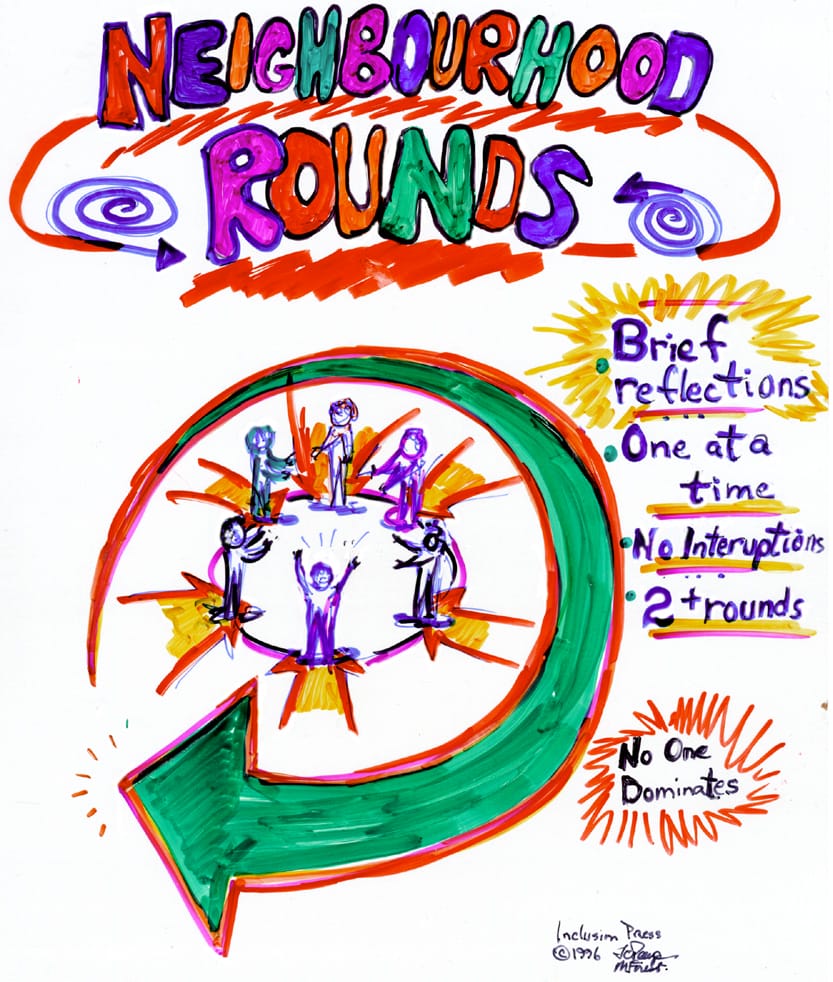 NEIGHBOURHOOD
ROUNDS
Brief
reflections
One at a
time
No Interuptions
2 + rounds
No One
Dominates
Inclusion Press
© 1996
M Forest